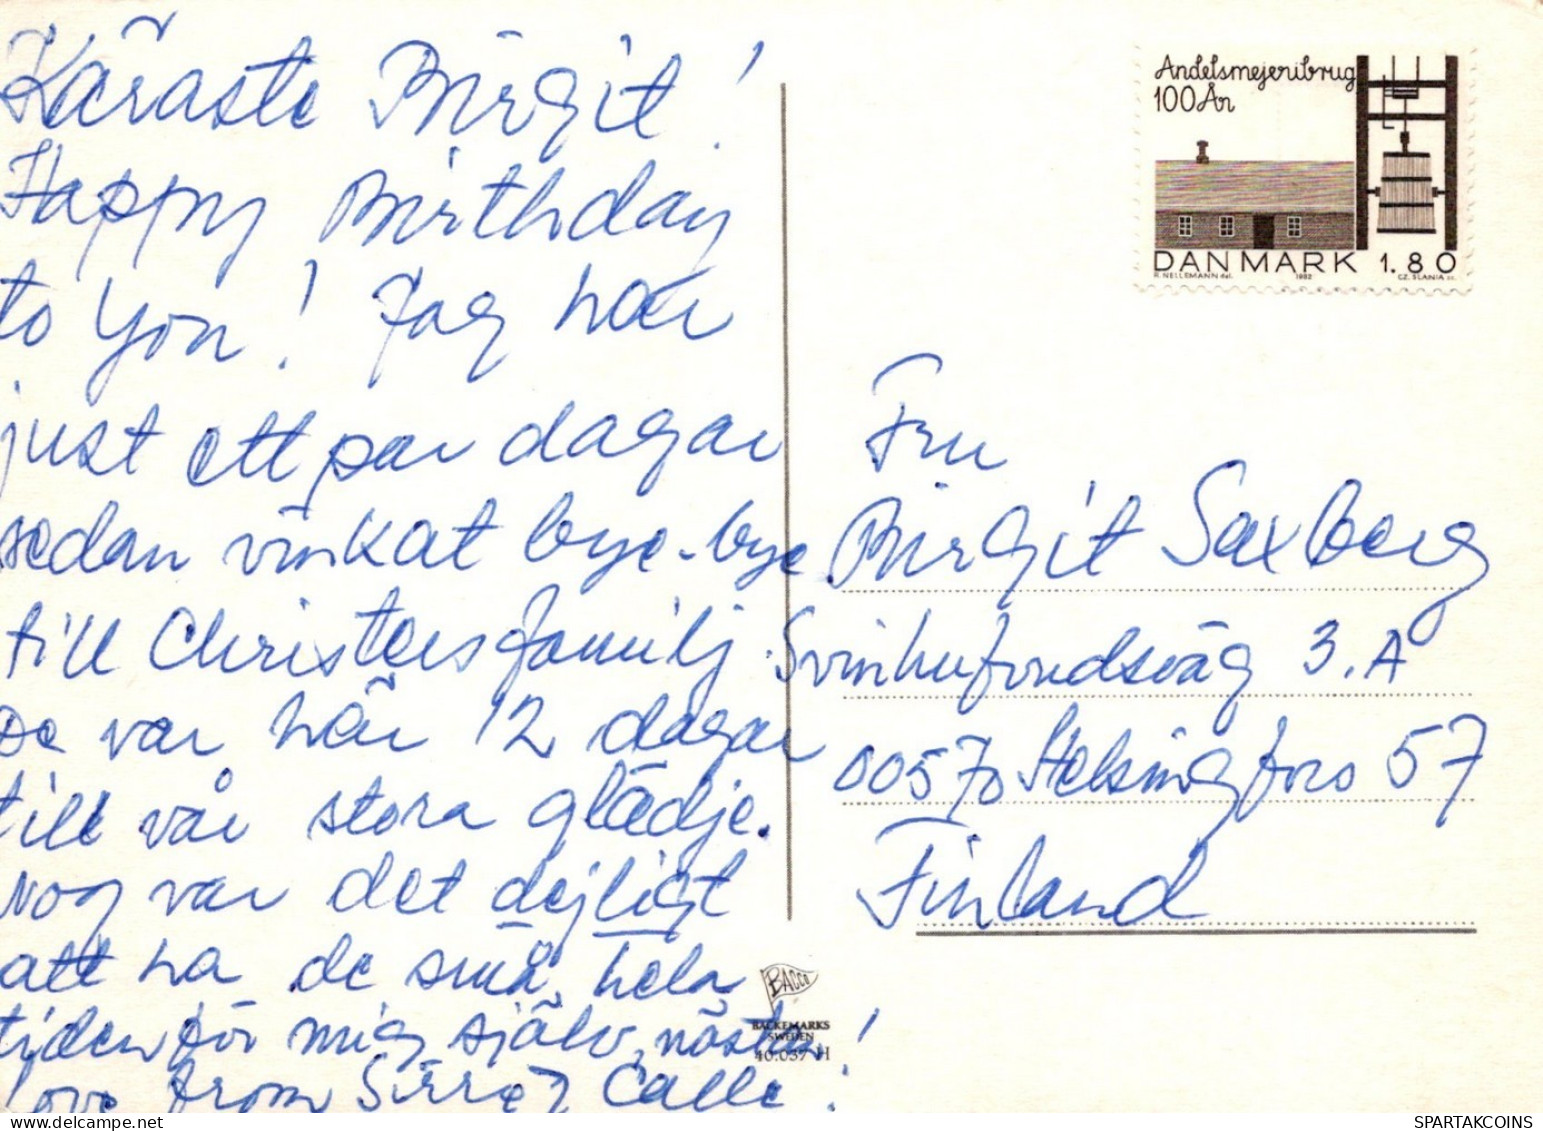 Käraste Birgit!
Happy Birthday
to you! Jag har
just ett par dagar
sedan vinkat bye-bye
till Christers familj.
De var här 12 dagar
till vår stora glädje.
Nog var det dejligt
att ha de små hela
tiden för mig själv, nästan!
love from Sirre & Calle!
Andelsmejeribrug
100 År
DANMARK 1.80
R. NELLEMANN del. 1982 CZ. SLANIA sc.
Fru
Birgit Saxberg
Svinhufvudsväg 3.A
00570 Helsingfors 57
Finland
BACCO
BÄCKEMARKS
SWEDEN
40.037 H
SPARTAKCOINS